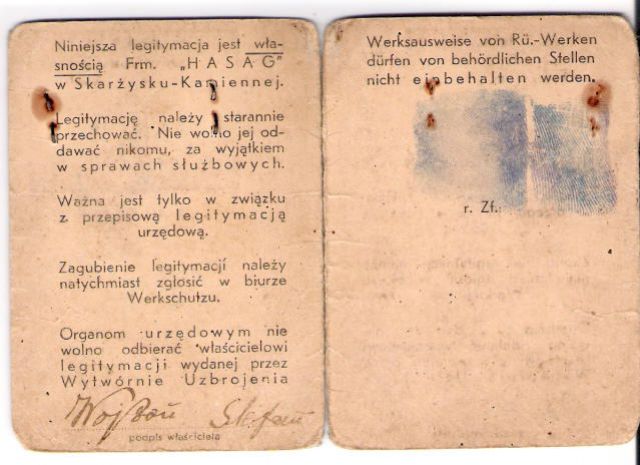 Niniejsza legitymacja jest wła-
snością Frm. „HASAG"
w Skarżysku-Kamiennej.
Legitymację należy starannie
przechować. Nie wolno jej od-
dawać nikomu, za wyjątkiem
w sprawach służbowych.
Ważna jest tylko w związku
z przepisową legitymacją
urzędową.
Zagubienie legitymacji należy
natychmiast zgłosić w biurze
Werkschutzu.
Organom urzędowym nie
wolno odbierać właścicielowi
legitymacji wydanej przez
Wytwórnie Uzbrojenia
Stefan
podpis właściciela
Werksausweise von Rü.-Werken
dürfen von behördlichen Stellen
nicht einbehalten werden.
r. Zf.: